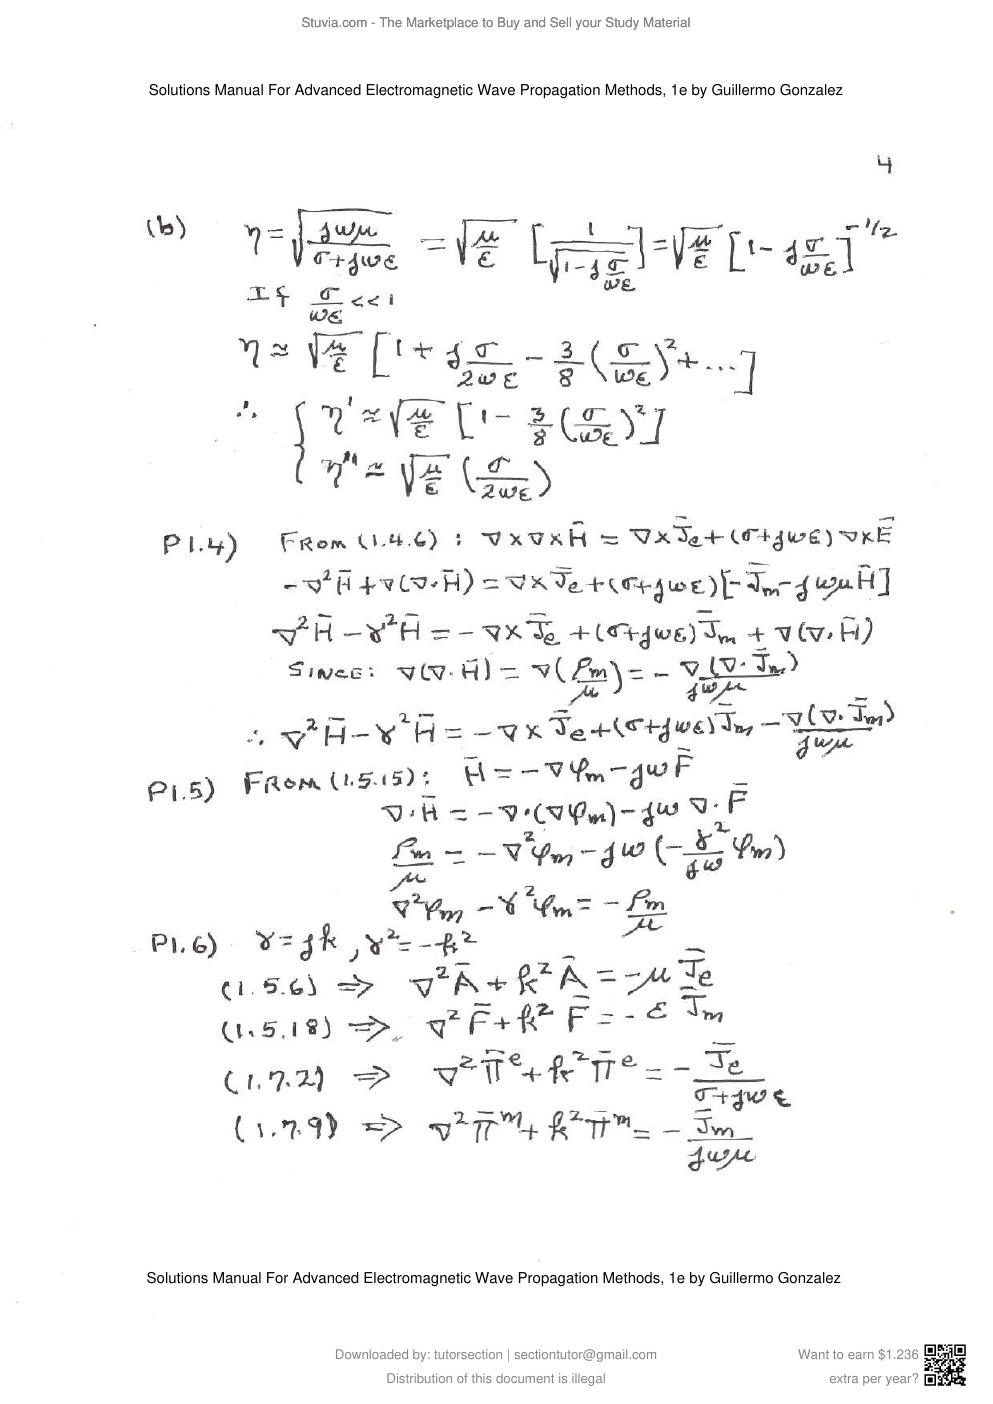 Stuvia.com - The Marketplace to Buy and Sell your Study Material
Solutions Manual For Advanced Electromagnetic Wave Propagation Methods, 1e by Guillermo Gonzalez
4
(b) η = √(jωμ / (σ+jωε)) = √(μ/ε) [1 / √(1-j σ/ωε)] = √(μ/ε) [1 - j σ/ωε]^-1/2
If σ/ωε << 1
η ≈ √(μ/ε) [1 + j σ/2ωε - 3/8 (σ/ωε)² + ...]
∴ { η' ≈ √(μ/ε) [1 - 3/8 (σ/ωε)²]
η'' ≈ √(μ/ε) (σ/2ωε)
P1.4) FROM (1.4.6) : ∇×∇×H̄ = ∇×J̄e + (σ+jωε) ∇×Ē
-∇²H̄ + ∇(∇·H̄) = ∇×J̄e + (σ+jωε)[-J̄m - jωμH̄]
∇²H̄ - γ²H̄ = -∇×J̄e + (σ+jωε)J̄m + ∇(∇·H̄)
SINCE: ∇(∇·H̄) = ∇(ρm/μ) = - ∇(∇·J̄m)/jωμ
∴ ∇²H̄ - γ²H̄ = -∇×J̄e + (σ+jωε)J̄m - ∇(∇·J̄m)/jωμ
P1.5) FROM (1.5.15): H̄ = -∇φm - jωF̄
∇·H̄ = -∇·(∇φm) - jω ∇·F̄
ρm/μ = -∇²φm - jω (-γ²/jω φm)
∇²φm - γ²φm = - ρm/μ
P1.6) γ = jk, γ² = -k²
(1.5.6) ⇒ ∇²Ā + k²Ā = -μ J̄e
(1.5.18) ⇒ ∇²F̄ + k² F̄ = - ε J̄m
(1.7.2) ⇒ ∇²π̄^e + k²π̄^e = - J̄e/(σ+jωε)
(1.7.9) ⇒ ∇²π̄^m + k²π̄^m = - J̄m/jωμ
Solutions Manual For Advanced Electromagnetic Wave Propagation Methods, 1e by Guillermo Gonzalez
Downloaded by: tutorsection | sectiontutor@gmail.com
Distribution of this document is illegal
Want to earn $1.236
extra per year?